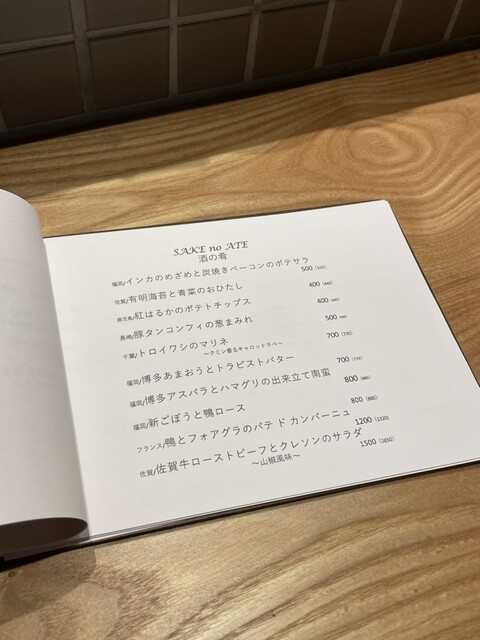 SAKE no ATE
酒の肴
福岡/インカのめざめと炭焼きベーコンのポテサラ 500 (550)
佐賀/有明海苔と青菜のおひたし 400 (440)
鹿児島/紅はるかのポテトチップス 400 (440)
長崎/豚タンコンフィの葱まみれ 500 (550)
千葉/トロイワシのマリネ 700 (770)
～クミン香るキャロットラペ～
福岡/博多あまおうとトラピストバター 700 (770)
福岡/博多アスパラとハマグリの出来立て南蛮 800 (880)
福岡/新ごぼうと鴨ロース 800 (880)
フランス/鴨とフォアグラのパテ ド カンパーニュ 1200 (1320)
佐賀/佐賀牛ローストビーフとクレソンのサラダ 1500 (1650)
～山椒風味～